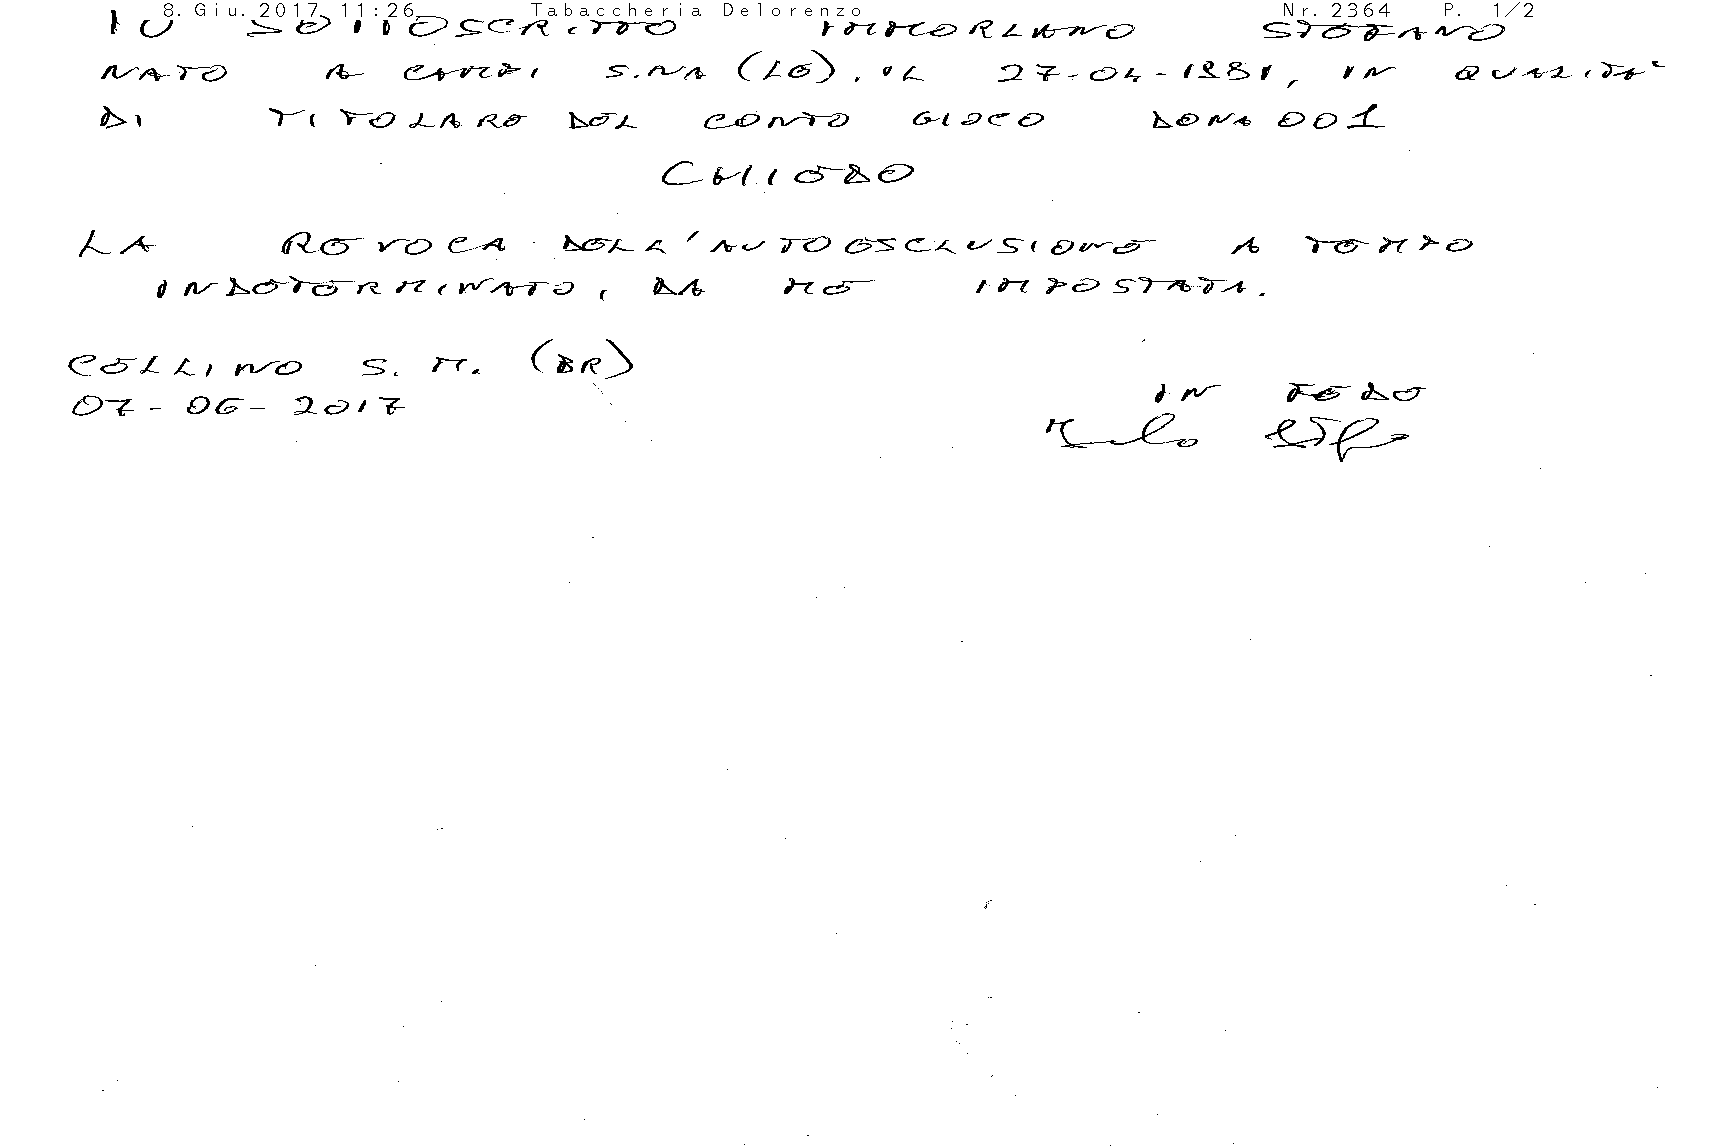 8. Giu. 2017 11:26 Tabaccheria Delorenzo Nr. 2364 P. 1/2
IO SOTTOSCRITTO IMMORLANO STEFANO
NATO A CAMPI S.NA (LE), IL 27-04-1981, IN QUALITA'
DI TITOLARE DEL CONTO GIOCO DONA001
CHIEDO
LA REVOCA DELL'AUTOESCLUSIONE A TEMPO
INDETERMINATO, DA ME IMPOSTATA.
CELLINO S. M. (BR)
07-06-2017
IN FEDE